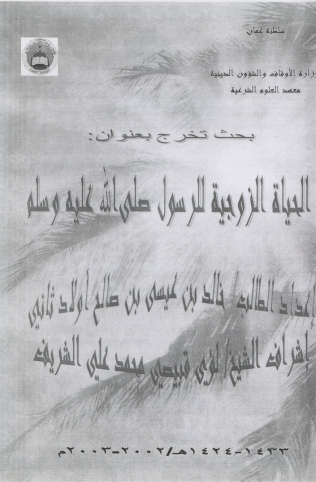 سلطنة عمان
وزارة الأوقاف والشؤون الدينية
معهد العلوم الشرعية
بحث تخرج بعنوان:
الحياة الزوجية للرسول صلى الله عليه وسلم
إعداد الطالب/ خالد بن عيسى بن صالح أولاد ثاني
إشراف الشيخ/ لؤي قبيصي محمد علي الشريف
١٤٢٣-١٤٢٤هـ/٢٠٠٢-٢٠٠٣م